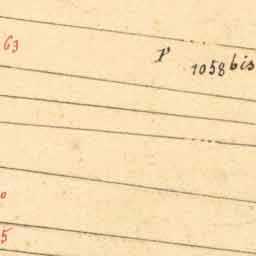 63
P
1058 bis
5